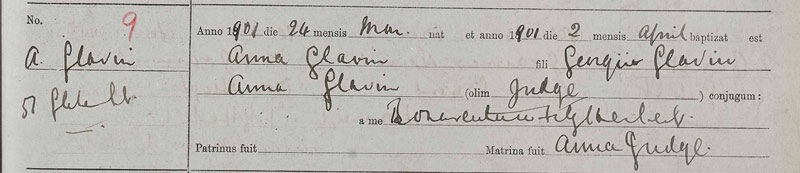 No. 9
Anno 1901 die 24 mensis Mar. nat et anno 1901 die 2 mensis April baptizat est
A. Glavin
Anna Glavin fili Georgii Glavin
Anna Glavin (olim Judge) conjugum:
51 Glebe St.
a me Bonaventure
Patrinus fuit Matrina fuit Anna Judge.